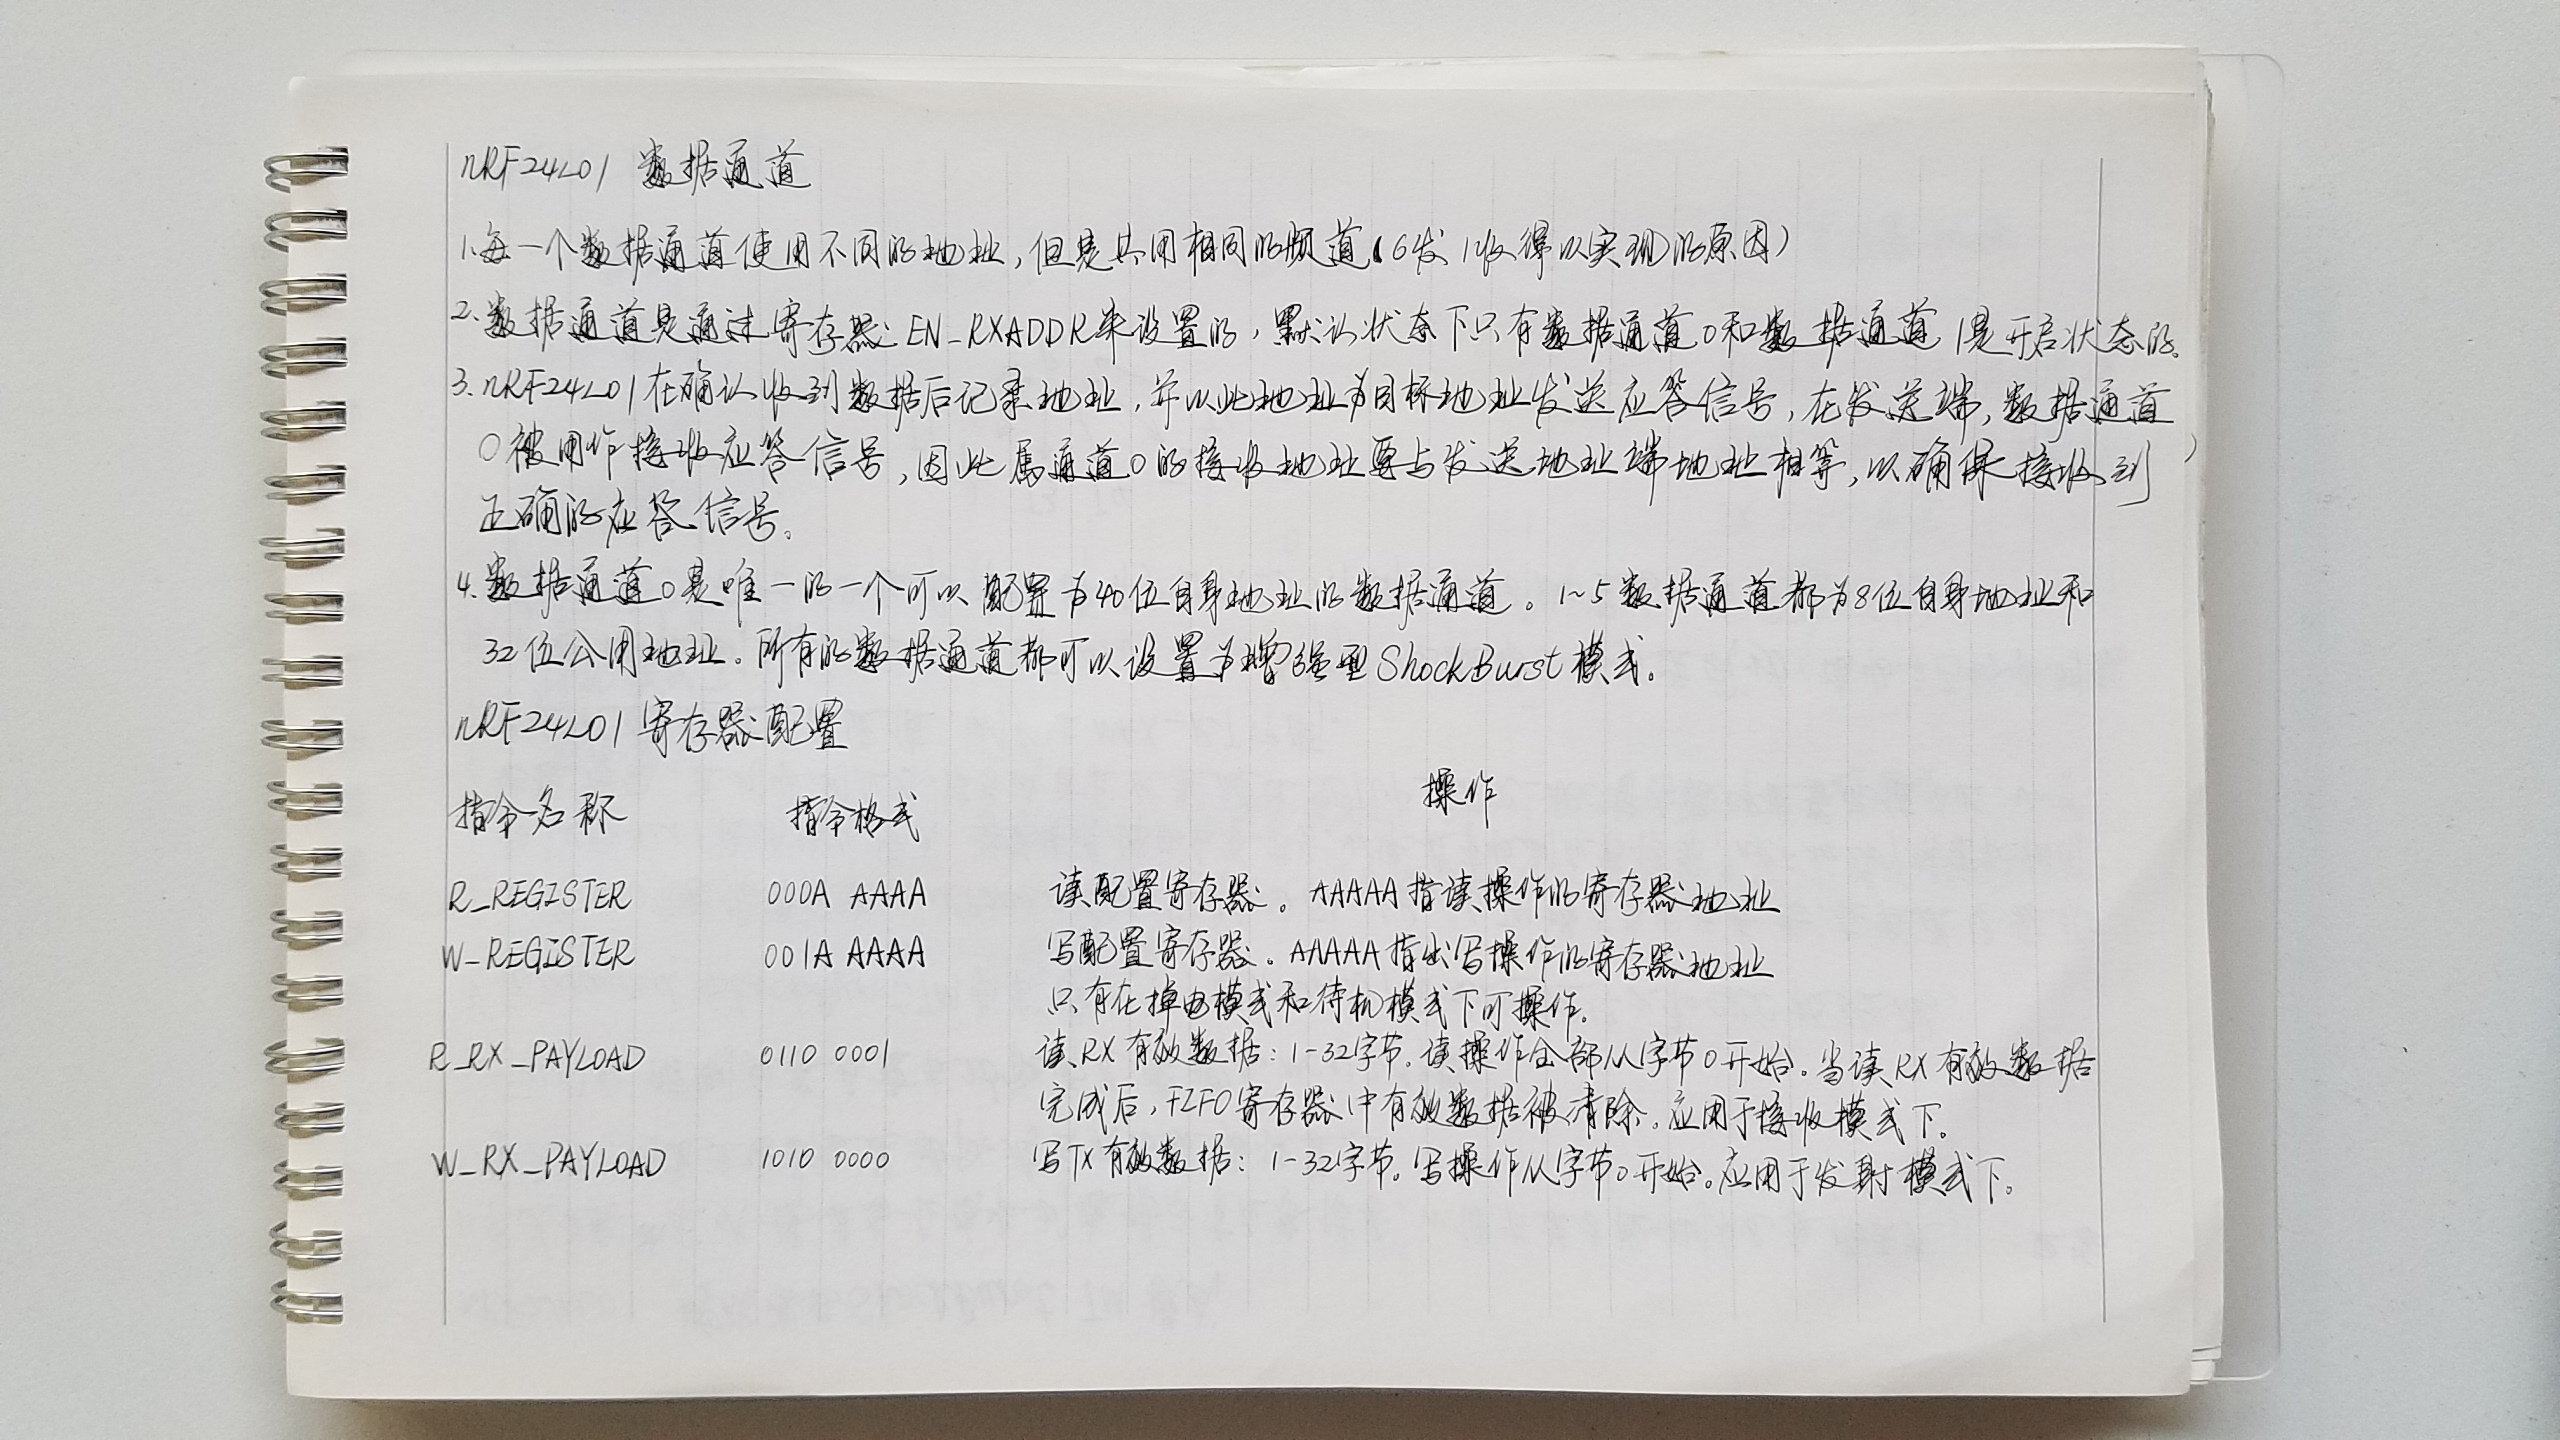 nRF24L01 数据通道
1.每一个数据通道使用不同的地址,但是共用相同的频道(6发1收得以实现的原因)
2.数据通道是通过寄存器EN_RXADDR来设置的,默认状态下只有数据通道0和数据通道1是开启状态的。
3.nRF24L01在确认收到数据后记录地址,并以此地址为目标地址发送应答信号,在发送端,数据通道
0被用作接收应答信号,因此属通道0的接收地址要与发送地址端地址相等,以确保接收到
正确的应答信号。
4.数据通道0是唯一的一个可以配置为40位自身地址的数据通道。1~5数据通道都为8位自身地址和
32位公用地址。所有的数据通道都可以设置为增强型ShockBurst模式。
nRF24L01寄存器配置
指令名称 指令格式 操作
R_REGISTER 000A AAAA 读配置寄存器。AAAAA指读操作的寄存器地址
W_REGISTER 001A AAAA 写配置寄存器。AAAAA指出写操作的寄存器地址
只有在掉电模式和待机模式下可操作。
R_RX_PAYLOAD 0110 0001 读RX有效数据:1-32字节。读操作全部从字节0开始。当读RX有效数据
完成后,FIFO寄存器中有效数据被清除。应用于接收模式下。
W_RX_PAYLOAD 1010 0000 写TX有效数据:1-32字节。写操作从字节0开始。应用于发射模式下。